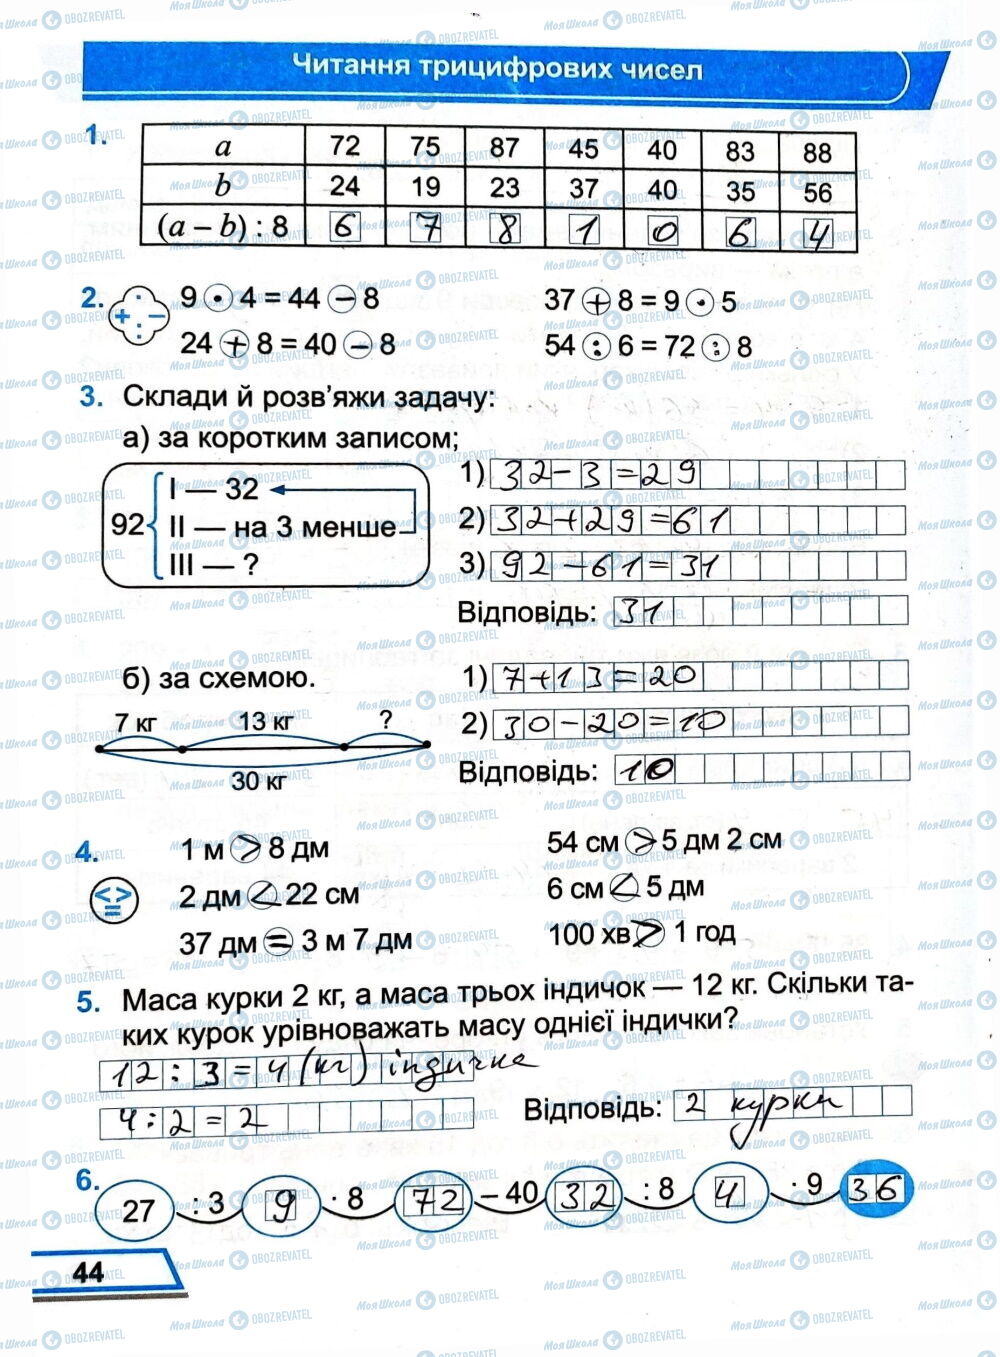 Читання трицифрових чисел
1.
a 72 75 87 45 40 83 88
b 24 19 23 37 40 35 56
(a – b) : 8 6 7 8 1 0 6 4
2. · + – : 9 · 4 = 44 – 8 37 + 8 = 9 · 5
24 + 8 = 40 – 8 54 : 6 = 72 : 8
3. Склади й розв’яжи задачу:
а) за коротким записом;
92 I — 32
II — на 3 менше
III — ?
1) 32-3=29
2) 32+29=61
3) 92-61=31
Відповідь: 31
б) за схемою.
7 кг 13 кг ?
30 кг
1) 7+13=20
2) 30-20=10
Відповідь: 10
4. < > =
1 м > 8 дм 54 см > 5 дм 2 см
2 дм < 22 см 6 см < 5 дм
37 дм = 3 м 7 дм 100 хв > 1 год
5. Маса курки 2 кг, а маса трьох індичок — 12 кг. Скільки та-
ких курок урівноважать масу однієї індички?
12:3=4 (кг) індичка
4:2=2 Відповідь: 2 курки
6. 27 : 3 9 · 8 72 – 40 32 : 8 4 · 9 36
44
МояШкола OBOZREVATEL